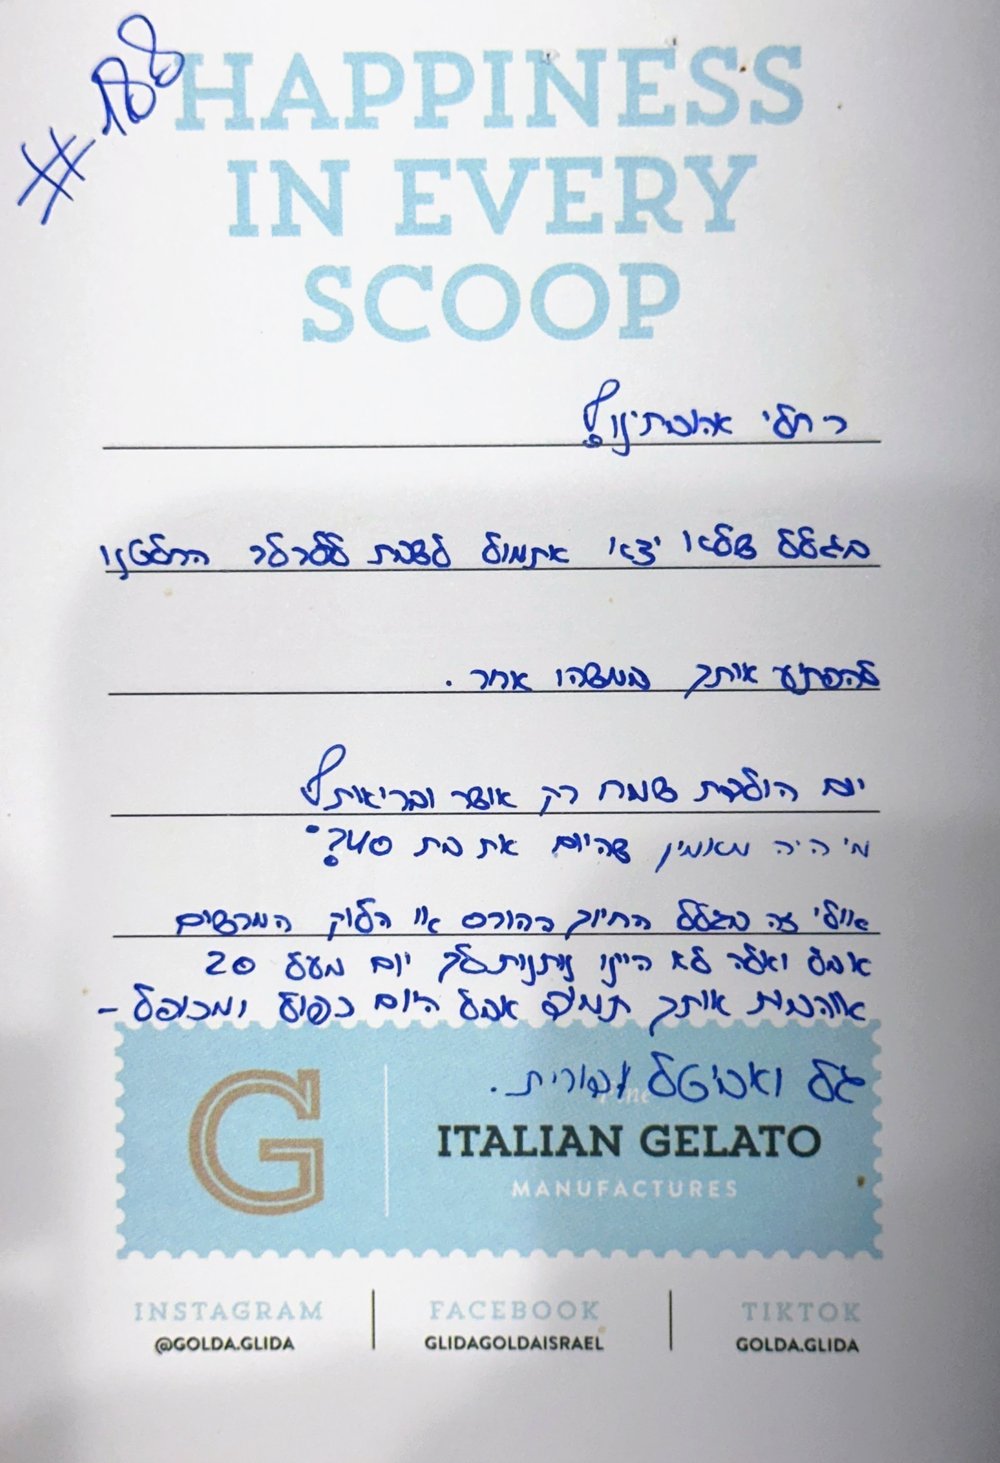 #188
HAPPINESS
IN EVERY
SCOOP
רחלי אהובתינו!
בגלל שלא יצאו אתמול לשבת לברלב החלטנו
להפתיע אותך במשהו אחר.
יום הולדת שמח רק אושר ובריאות!
מי היה מאמין שהיום את בת 40?!
אולי זה בגלל החיוך ההורס או הלוק המרשים
אבל ואלה לא היינו נותנות לך יום מעל 20
אוהבות אותך תמיד אבל היום כפול ומכופל -
גל ואביטל
Fine
ITALIAN GELATO
MANUFACTURES
G
INSTAGRAM
@GOLDA.GLIDA
FACEBOOK
GLIDAGOLDAISRAEL
TIKTOK
GOLDA.GLIDA